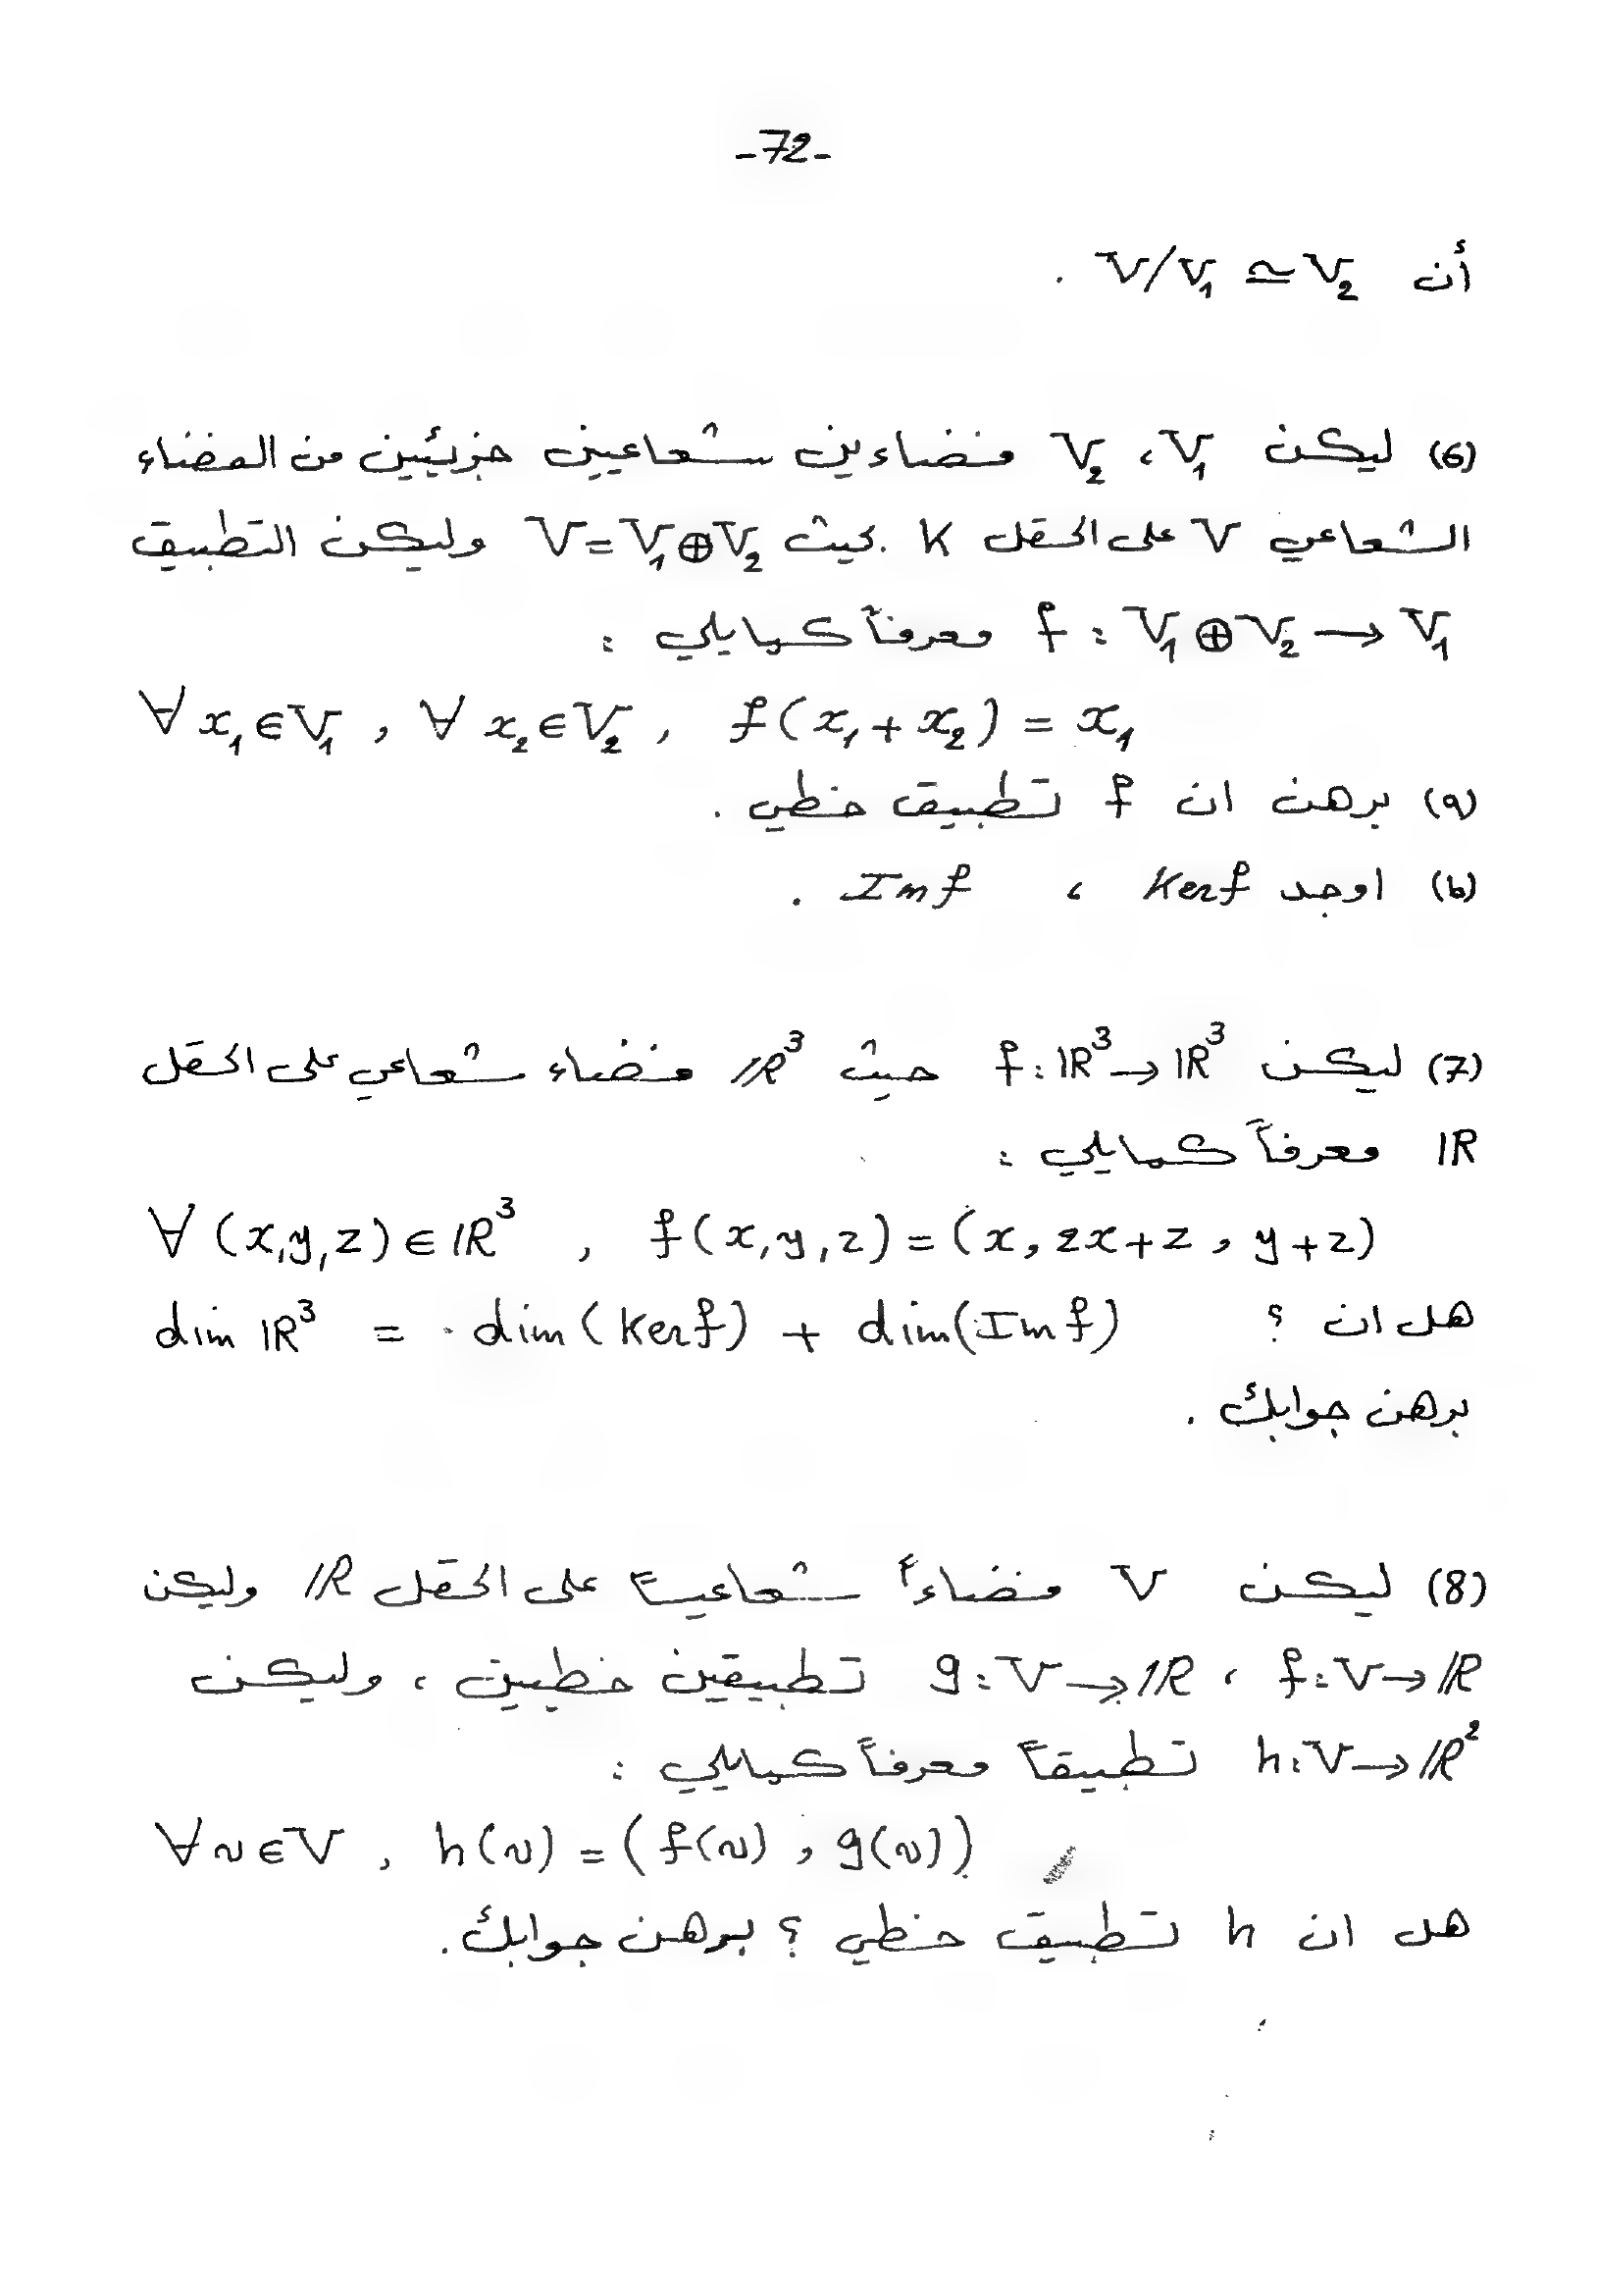 -72-
أن V/V₁ ≃ V₂ .
(6) ليكن V₁ ، V₂ فضاءين شعاعيين جزئيين من الفضاء
الشعاعي V على الحقل K بحيث V = V₁ ⊕ V₂ وليكن التطبيق
f : V₁ ⊕ V₂ → V₁ معرفاً كمايلي :
∀ x₁ ∈ V₁ , ∀ x₂ ∈ V₂ , f(x₁ + x₂) = x₁
(a) برهن ان f تطبيق خطي .
(b) اوجد Ker f ، Im f .
(7) ليكن f : IR³ → IR³ حيث IR³ فضاء شعاعي على الحقل
IR معرفاً كمايلي :
∀ (x,y,z) ∈ IR³ , f(x,y,z) = (x, 2x+z, y+z)
هل ان ؟ dim IR³ = dim(Ker f) + dim(Im f)
برهن جوابك .
(8) ليكن V فضاءاً شعاعياً على الحقل IR وليكن
f : V → IR ، g : V → IR تطبيقين خطيين ، وليكن
h : V → IR² تطبيقاً معرفاً كمايلي :
∀ v ∈ V , h(v) = (f(v) , g(v))
هل ان h تطبيق خطي ؟ برهن جوابك .